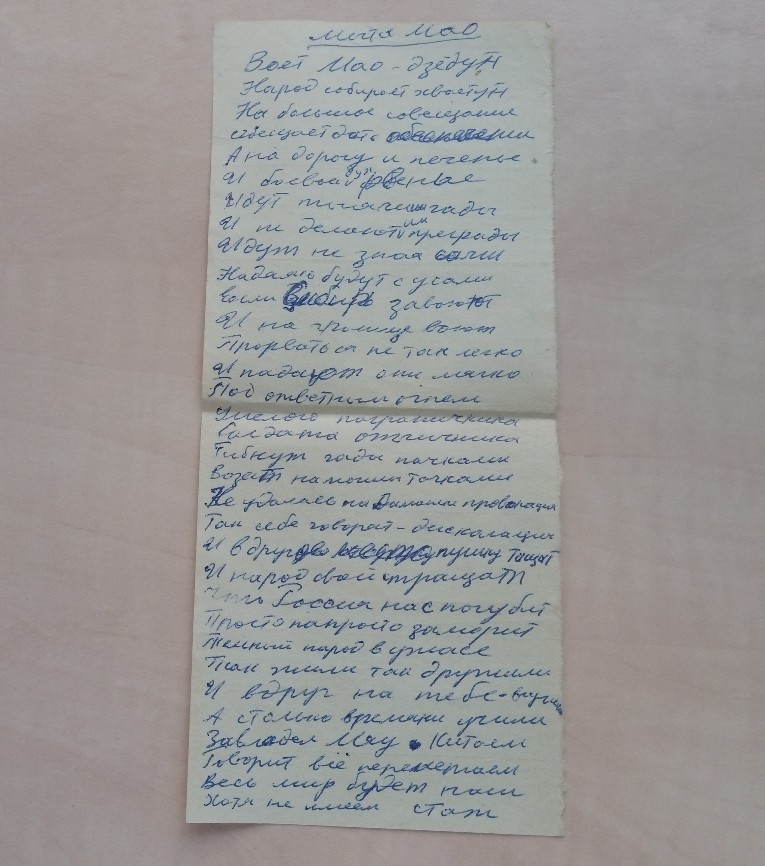 Мечта Мао
Воет Мао-дзедун
Народ собирает хвастун
На большое совещание
обещает дать
А на дорогу и печенье
И боевое
Идут тысячи гады
И не делают им преграды
Идут не зная сами
Надолго будут с усами
Если Сибирь завоюют
И на границе воюют
Прорваться не так легко
И падают они мягко
Под ответным огнем
Умелого пограничника
Солдата отличника
Гибнут гады пачками
Возят на машин тачками
Не удалась на Дамански провокация
Так себе говорят-дискалация
И вдруг пушку тащат
И народ свой стращат
Что Россия нас погубит
Просто напросто заморит
Темный народ в ужасе
Так жили так дружили
И вдруг на тебе-
А столько времени учили
Завладел Мау Китаем
Говорит всё
Весь мир будет наш
Хотя не имеем стаж